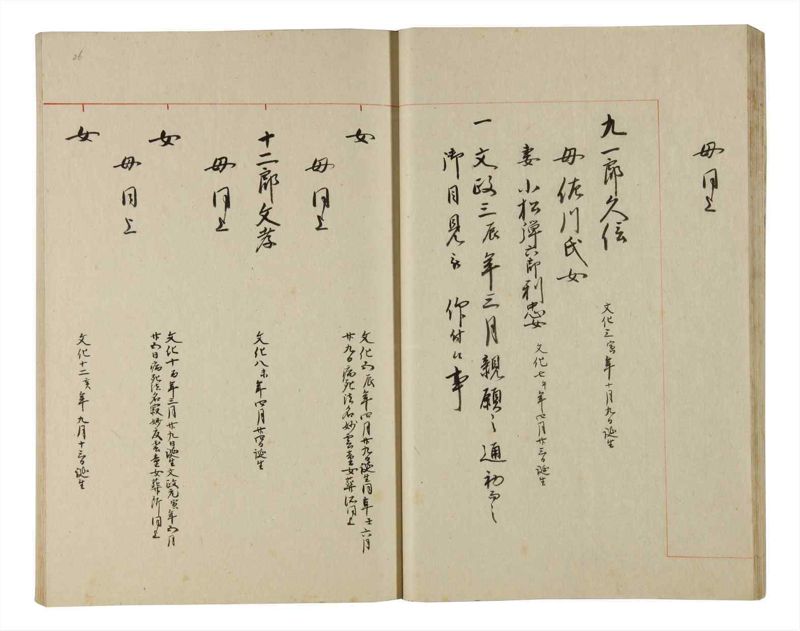 母同上
九一郎久信
文化三寅年十月九日誕生
母佐川氏女
妻小松弾六郎利忠女
文化七午年四月廿三日誕生
一文政三辰年三月親願之通初而之
御目見被 仰付候事
女
文化五辰年四月廿九日誕生同年十六月
廿九日病死法名妙雲童女葬所同上
母同上
十二郎文孝
文化八未年四月廿四日誕生
母同上
女
文化十四年三月廿九日誕生文政元寅年五月
廿四日病死法名寂妙反雲童女葬所同上
母同上
女
文化十二亥年九月十三日誕生
26